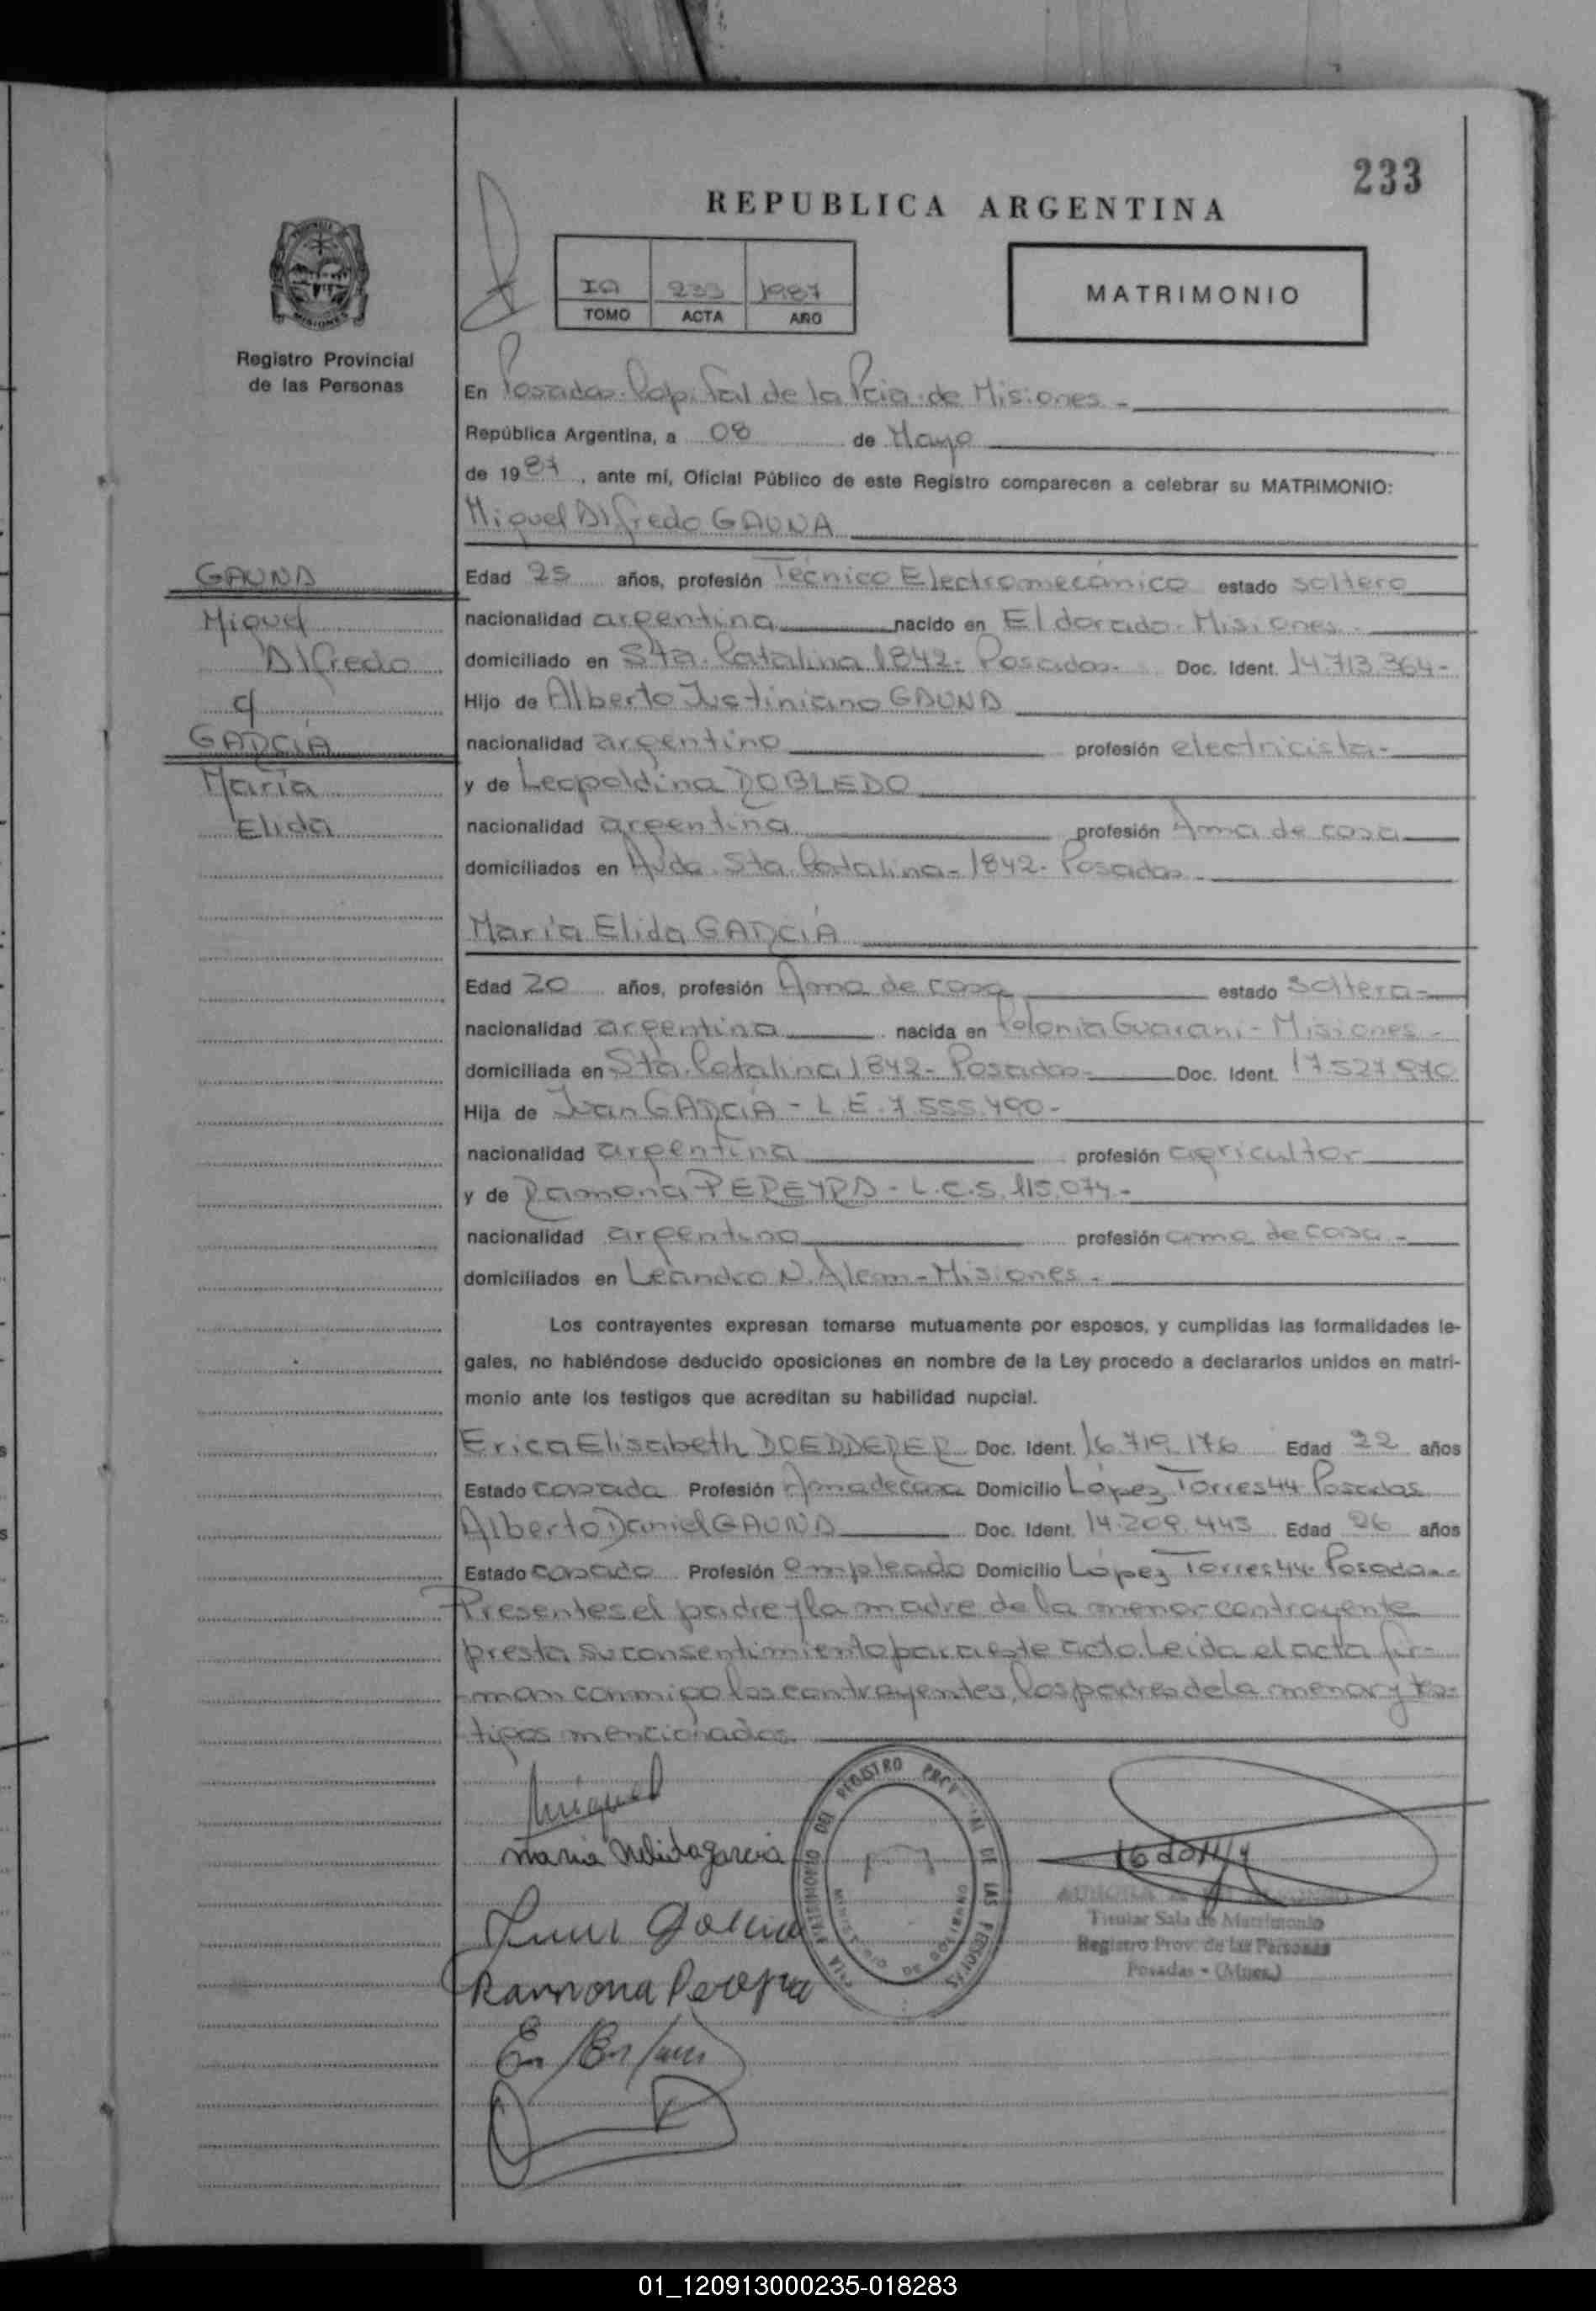 233
REPUBLICA ARGENTINA
MATRIMONIO
233 1987
TOMO ACTA AÑO
Registro Provincial
de las Personas
En Posadas. Capital de la Pcia. de Misiones -
República Argentina, a 08 de Mayo
de 1987, ante mí, Oficial Público de este Registro comparecen a celebrar su MATRIMONIO:
Miguel Alfredo GAUNA
GAUNA
Miguel
Alfredo
c/
GARCIA
María
Elida
Edad 25 años, profesión Técnico Electromecánico estado soltero
nacionalidad argentina nacido en Eldorado. Misiones -
domiciliado en Sta. Catalina 1842- Posadas- Doc. Ident. 14.713.364-
Hijo de Alberto Justiniano GAUNA
nacionalidad argentino profesión electricista-
y de Leopoldina ROBLEDO
nacionalidad argentina profesión Ama de casa
domiciliados en Avda. Sta. Catalina- 1842- Posadas -
María Elida GARCIA
Edad 20 años, profesión Ama de casa estado soltera-
nacionalidad argentina nacida en Colonia Guaraní - Misiones -
domiciliada en Sta. Catalina 1842- Posadas- Doc. Ident. 17.527.970
Hija de Juan GARCIA - L.E. 7.555.490-
nacionalidad argentina profesión agricultor
y de Ramona PEREYRA - L.C.5.115.074-
nacionalidad argentina profesión ama de casa -
domiciliados en Leandro N. Alem - Misiones -
Los contrayentes expresan tomarse mutuamente por esposos, y cumplidas las formalidades le-
gales, no habiéndose deducido oposiciones en nombre de la Ley procedo a declararlos unidos en matri-
monio ante los testigos que acreditan su habilidad nupcial.
Erica Elisabeth DOEDDERER Doc. Ident. 16.719.176 Edad 22 años
Estado casada Profesión Ama de casa Domicilio López Torres 44 Posadas
Alberto Daniel GAUNA Doc. Ident. 14.209.443 Edad 26 años
Estado casado Profesión empleado Domicilio López Torres 44- Posadas-
Presentes el padre y la madre de la menor contrayente
presta su consentimiento para este acto. Leída el acta fir-
man conmigo los contrayentes, los padres de la menor y tes-
tigos mencionados.
Miguel
Maria Nelida Garcia
Juan Garcia
Ramona Pereyra
REGISTRO DE LAS PERSONAS
Titular Sala de Matrimonio
Registro Prov. de las Personas
Posadas - (Mnes.)
01_120913000235-018283